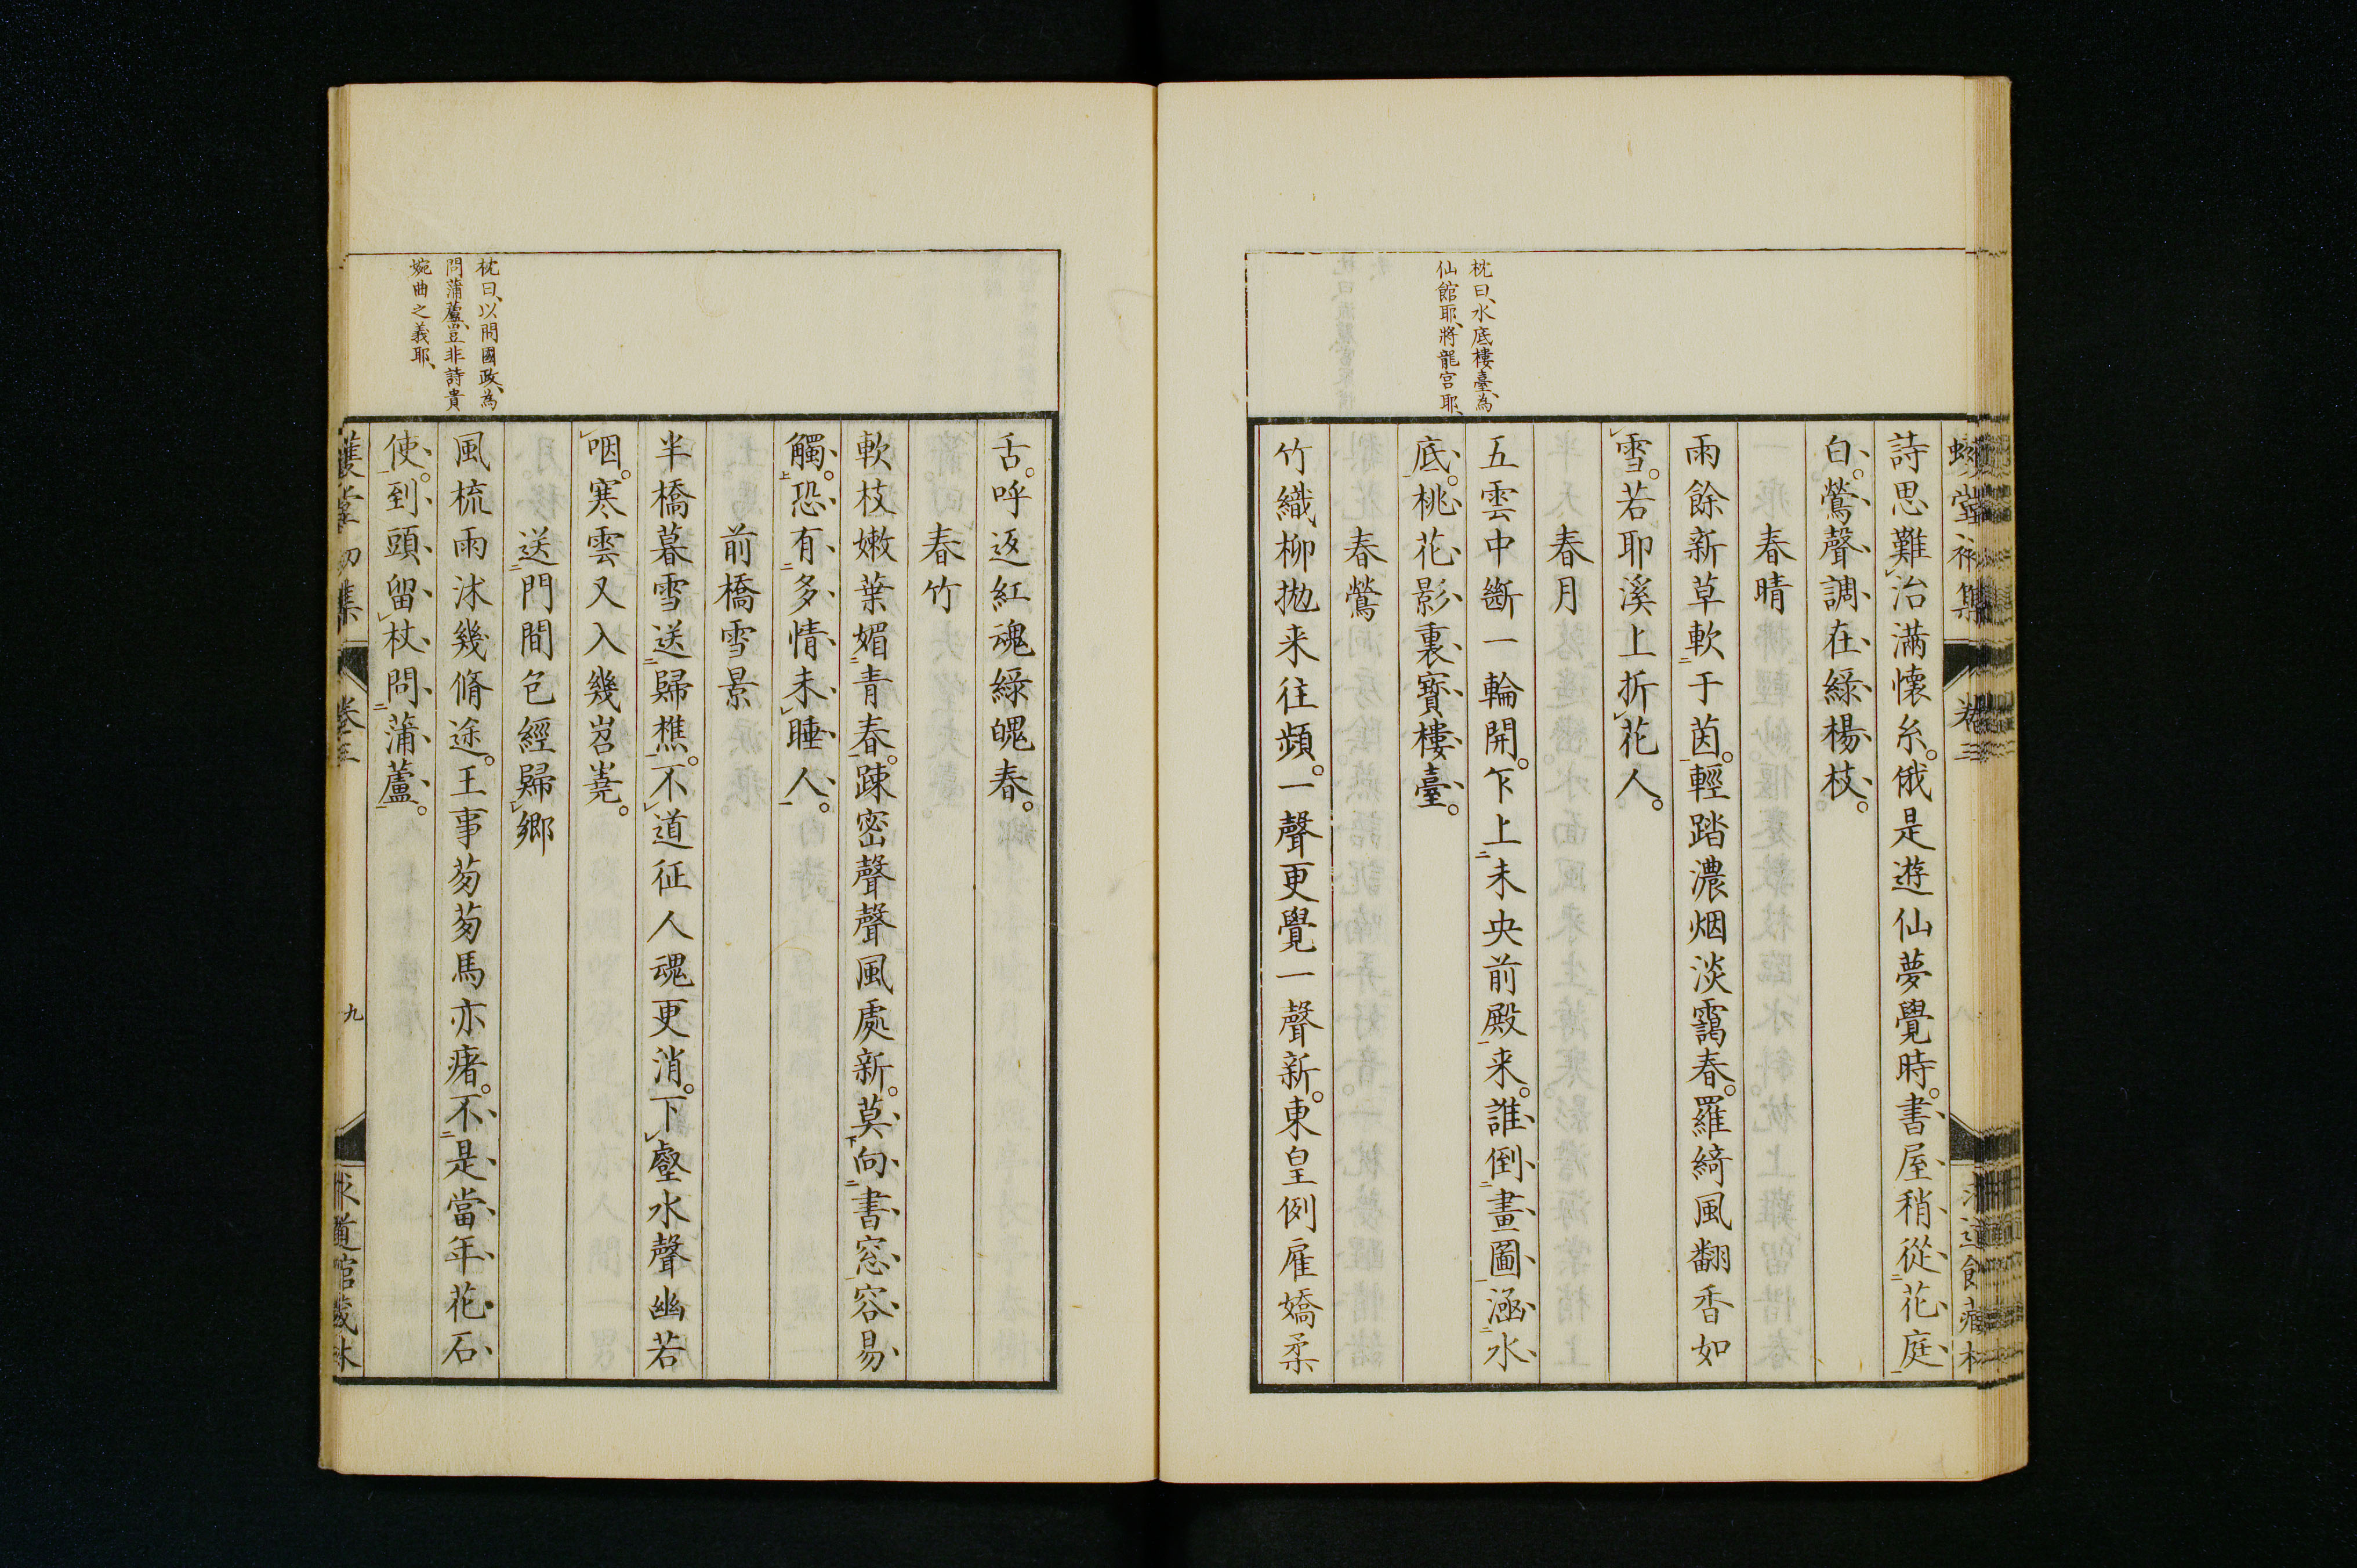 詩思難治滿懷糸。俄是遊仙夢覺時。書屋稍從花庭
白。鶯聲調在綠楊枝。
春晴
雨餘新草軟于茵。輕踏濃烟淡靄春。羅綺風翻香如
雪。若耶溪上折花人。
春月
五雲中斷一輪開。乍上未央前殿来。誰倒畫圖涵水
底。桃花影裏寳樓臺。
枕曰、水底樓臺、為
仙館耶、將龍宮耶、
春鶯
竹織柳拋来往頻。一聲更覺一聲新。東皇例雇嬌柔
舌。呼返紅魂綠魄春。
春竹
軟枝嫩葉媚青春。踈密聲聲風處新。莫向書窓容易
觸。恐有多情未睡人。
前橋雪景
半橋暮雪送歸樵。不道征人魂更消。下壑水聲幽若
咽。寒雲又入幾岧嶤。
送門間色經歸鄉
風梳雨沐幾脩途。王事芻芻馬亦瘏。不是當年花石
使。到頭留杖問蒲蘆。
枕曰、以問國政、為
問蒲蘆、豈非詩貴
婉曲之義耶、
卷三
九